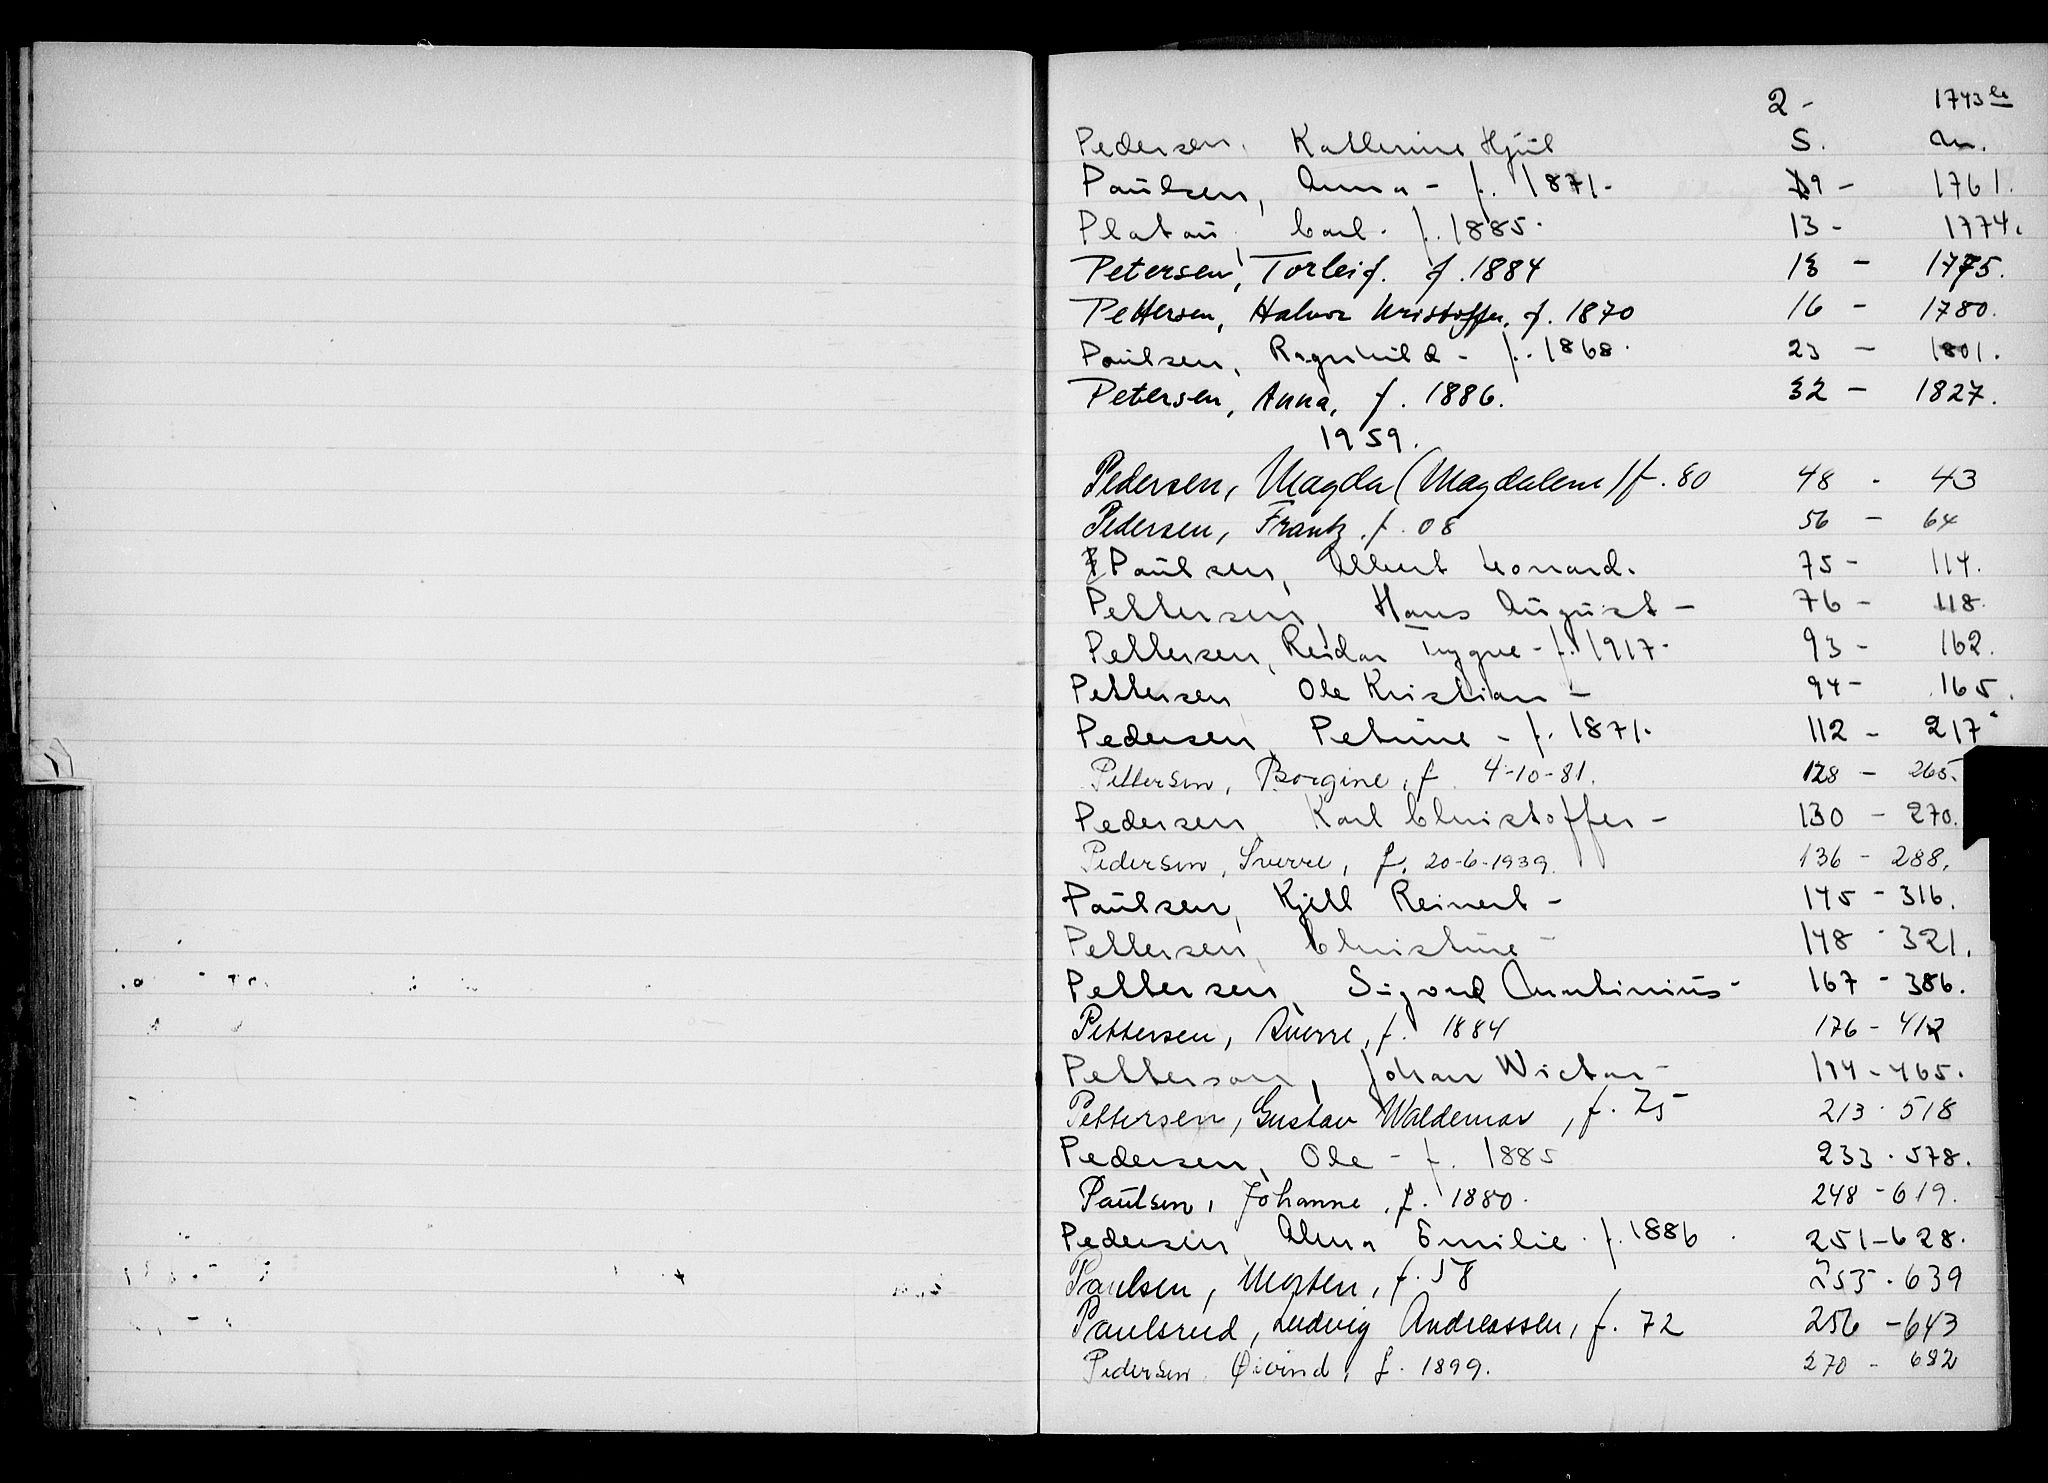 2 - 1743
Pedersen, Katherine Hjül S. An.
Paulsen, Anna - f. 1871 - 29 - 1761.
Platou, Carl. f. 1885. 13 - 1774.
Petersen, Torleif. f. 1884 13 - 1775.
Pettersen, Halvor Kristoffer, f. 1870 16 - 1780.
Paulsen, Ragnhild - f. 1868. 23 - 1801.
Petersen, Anna, f. 1886. 32 - 1827.
1959.
Pedersen, Magda (Magdalene) f. 80 48 - 43
Pedersen, Frantz, f. 08 56 - 64
Paulsen, Albert Leonard. 75 - 114.
Pettersen, Hans August - 76 - 118.
Pettersen, Reidar Trygve - f. 1917. 93 - 162.
Pettersen Ole Kristian - 94 - 165.
Pedersen, Petrine - f. 1871. 112 - 217
Pettersen, Borgine, f. 4-10-81. 128 - 265.
Pedersen, Karl Christoffer - 130 - 270.
Pedersen, Sverre, f. 20-6-1939. 136 - 288.
Paulsen, Kjell Reinert - 145 - 316.
Pettersen, Christine - 148 - 321.
Pettersen, Sigvard - 167 - 386.
Pettersen, Sverre, f. 1884 176 - 412
Petterson, Johan Wictor - 194 - 465.
Pettersen, Gustav Waldemar, f. 75 213 - 518
Pedersen, Ole - f. 1885 233 - 578.
Paulsen, Johanne, f. 1880. 248 - 619.
Pedersen, Alma Emilie. f. 1886. 251 - 628.
Paulsen, Morten, f. 58 253 - 639
Paulsrud, Ludvig Andreassen, f. 72 256 - 643
Pedersen, Øivind, f. 1899. 270 - 682